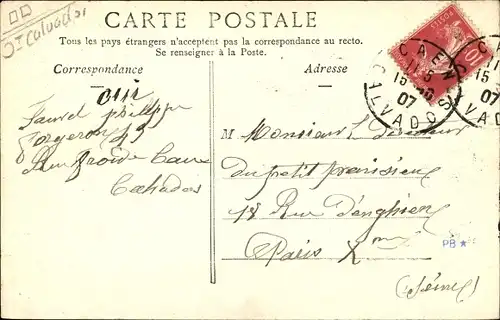 St Calvados
CARTE POSTALE
Tous les pays étrangers n'acceptent pas la correspondance au recto.
Se renseigner à la Poste.
Correspondance
Adresse
CAEN
15
07
CALVADOS
10
Faurel philippe
forgeron
Rue froide Caen
Calvados
M Monsieur le Directeur
du petit parisien
18 Rue D'enghien
Paris X me
(Seine)
PB